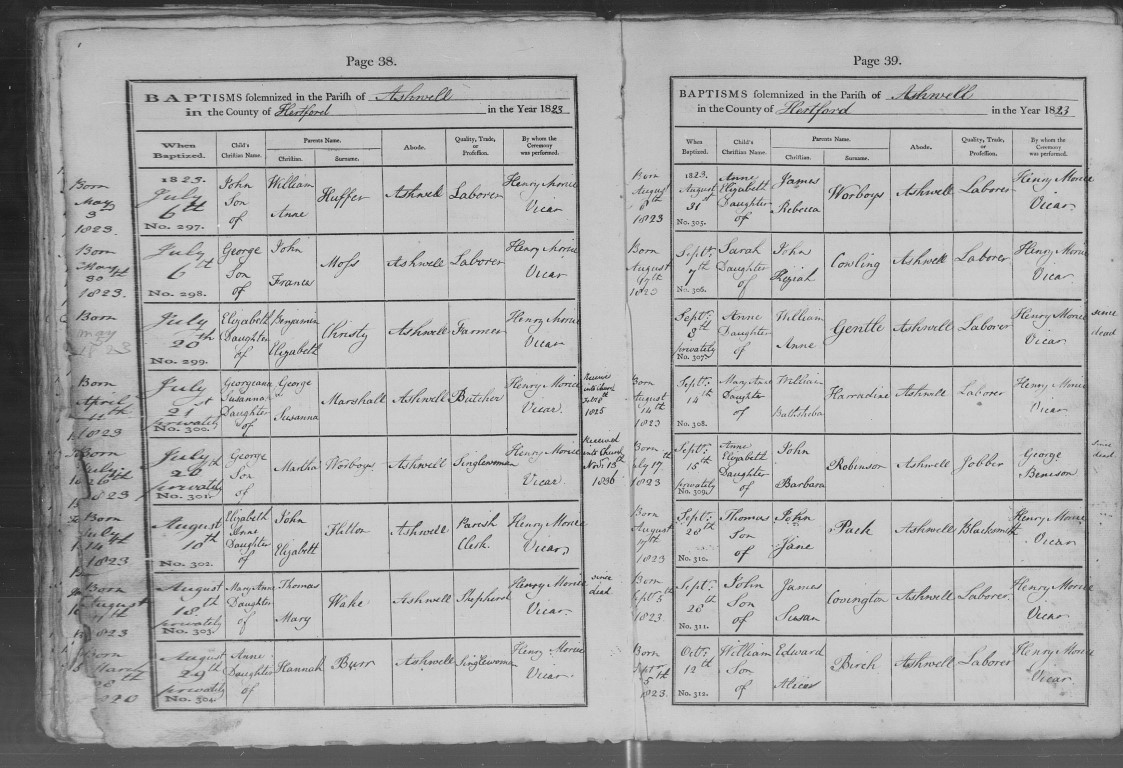 Page 38.
BAPTISMS solemnized in the Parish of Ashwell
in the County of Hertford in the Year 1823
When Baptized. Child's Christian Name. Parents Name. Christian. Surname. Abode. Quality, Trade, or Profession. By whom the Ceremony was performed.
Born May 3 1823. 1823. July 6th No. 297. John Son of William Anne Huffer Ashwell Laborer Henry Morice Vicar
Born May 30th 1823. July 6th No. 298. George Son of John Frances Moss Ashwell Laborer Henry Morice Vicar
Born May 1823 July 20th No. 299. Elizabeth Daughter of Benjamin Elizabeth Christy Ashwell Farmer Henry Morice Vicar
Born April 1823 July 21st privately No. 300. Georgeann Susanna Daughter of George Susanna Marshall Ashwell Butcher Henry Morice Vicar. into Church 1825
Born July 1823 July 26th privately No. 301. George Son of Martha Worboys Ashwell Singlewoman Henry Morice Vicar Received into Church Novr. 13th 1836
Born July 14 1823 August 10th No. 302. Elizabeth Anne Daughter of John Elizabeth Flitton Ashwell Parish Clerk. Henry Morice Vicar
Born August 1823 August 18th privately No. 303. Mary Anne Daughter of Thomas Mary Wake Ashwell Shepherd Henry Morice Vicar since died
Born March August 29th privately No. 304. Anne Daughter of Hannah Burr Ashwell Singlewoman Henry Morice Vicar
Page 39.
BAPTISMS solemnized in the Parish of Ashwell
in the County of Hertford in the Year 1823
When Baptized. Child's Christian Name. Parents Name. Christian. Surname. Abode. Quality, Trade, or Profession. By whom the Ceremony was performed.
Born August 8th 1823 1823. August 31st No. 305. Anne Elizabeth Daughter of James Rebecca Worboys Ashwell Laborer Henry Morice Vicar
Born August 1823 Septr. 7th No. 306. Sarah Daughter of John Keziah Cowling Ashwell Laborer Henry Morice Vicar
Septr. 8th privately No. 307. Anne Daughter of William Anne Gentle Ashwell Laborer Henry Morice Vicar since dead
Born August 14th 1823 Septr. 14th No. 308. Mary Ann Daughter of William Bathsheba Harradine Ashwell Laborer Henry Morice Vicar
Born July 17th 1823 Septr. 15th privately No. 309. Anne Elizabeth Daughter of John Barbara Robinson Ashwell Jobber George Benison since dead
Born August 1823 Septr. 28th No. 310. Thomas Son of John Jane Pack Ashwell Blacksmith Henry Morice Vicar
Born Septr. 1823. Septr. 28th No. 311. John Son of James Susan Covington Ashwell Laborer Henry Morice Vicar
Born Septr. 5th 1823. Octr. 12th No. 312. William Son of Edward Birch Ashwell Laborer Henry Morice Vicar